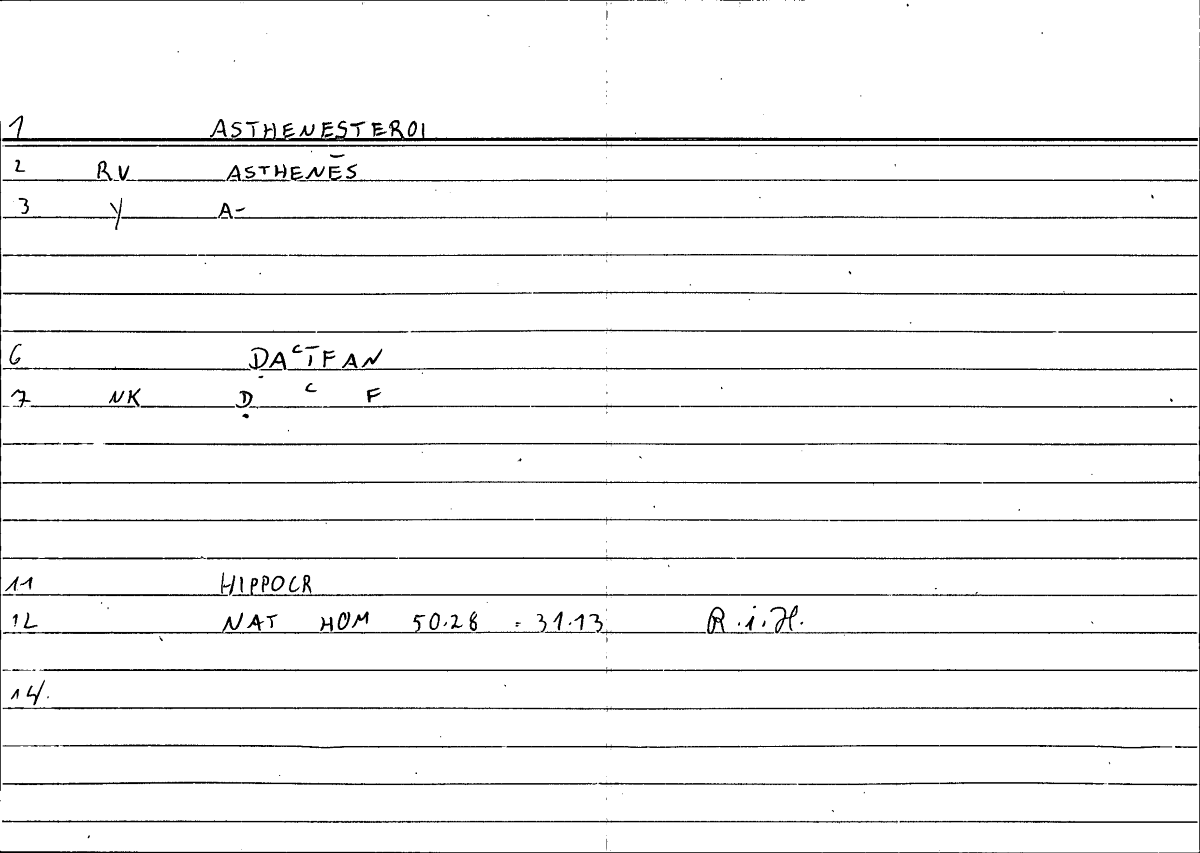 1 ASTHENESTEROI
2 RV ASTHENĒS
3 y A-
6 ḌAᶜTFAN
7 NK Ḍ ᶜ F
11 HIPPOCR
12 NAT HOM 50.28 = 31.13 R.i.H.
14.